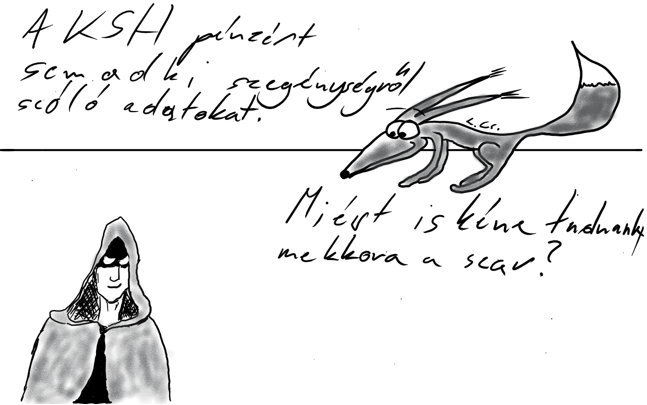 A KSH pénzért
sem ad ki szegénységről
szóló adatokat.
L.Cs.
Miért is kéne tudnunk
mekkora a szar?